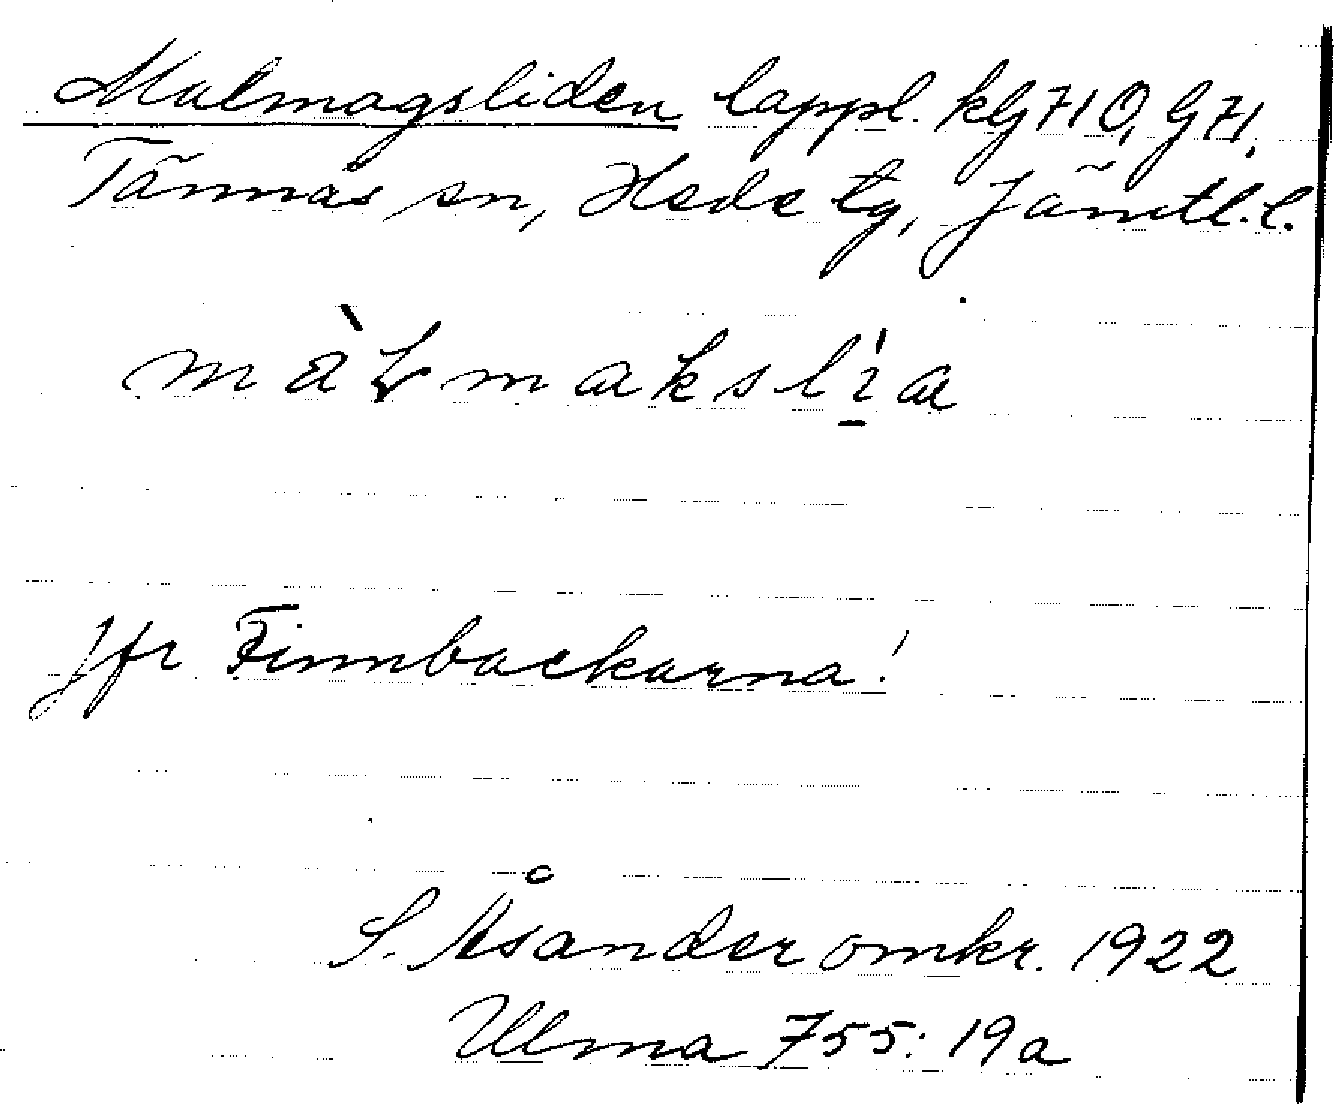 Malmagsliden lappl. kG 71 Ö, G 71,
Tännäs sn, Hede tg, Jämtl. l.
màLmakslı̱́a
Jfr Finnbackarna!
S. Åsander omkr. 1922
Ulma 755: 19a